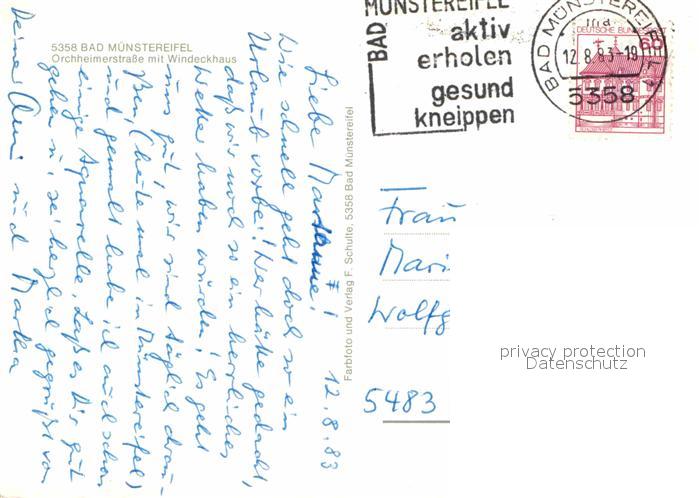 5358 BAD MÜNSTEREIFEL
Orchheimerstraße mit Windeckhaus
Liebe Marianne!
12.8.83
Wie schnell geht doch so ein
Urlaub vorbei! Wer hätte gedacht,
daß wir noch so ein herrliches
Wetter haben würden! Es geht
uns gut, wir sind täglich drau-
ßen, (heute mal in Münstereifel)
und gemalt habe ich auch schon
einige Aquarelle. Laß es Dir gut
gehen u. sei herzlich gegrüßt von
Deiner und Martha
Farbfoto und Verlag F. Schulte, 5358 Bad Münstereifel
BAD
MÜNSTEREIFEL
aktiv
erholen
gesund
kneippen
BAD MÜNSTEREIFEL 1
12.8.83-19
5358
DEUTSCHE BUNDES
60
Frau
Mari
Wolfg
5483
privacy protection
Datenschutz